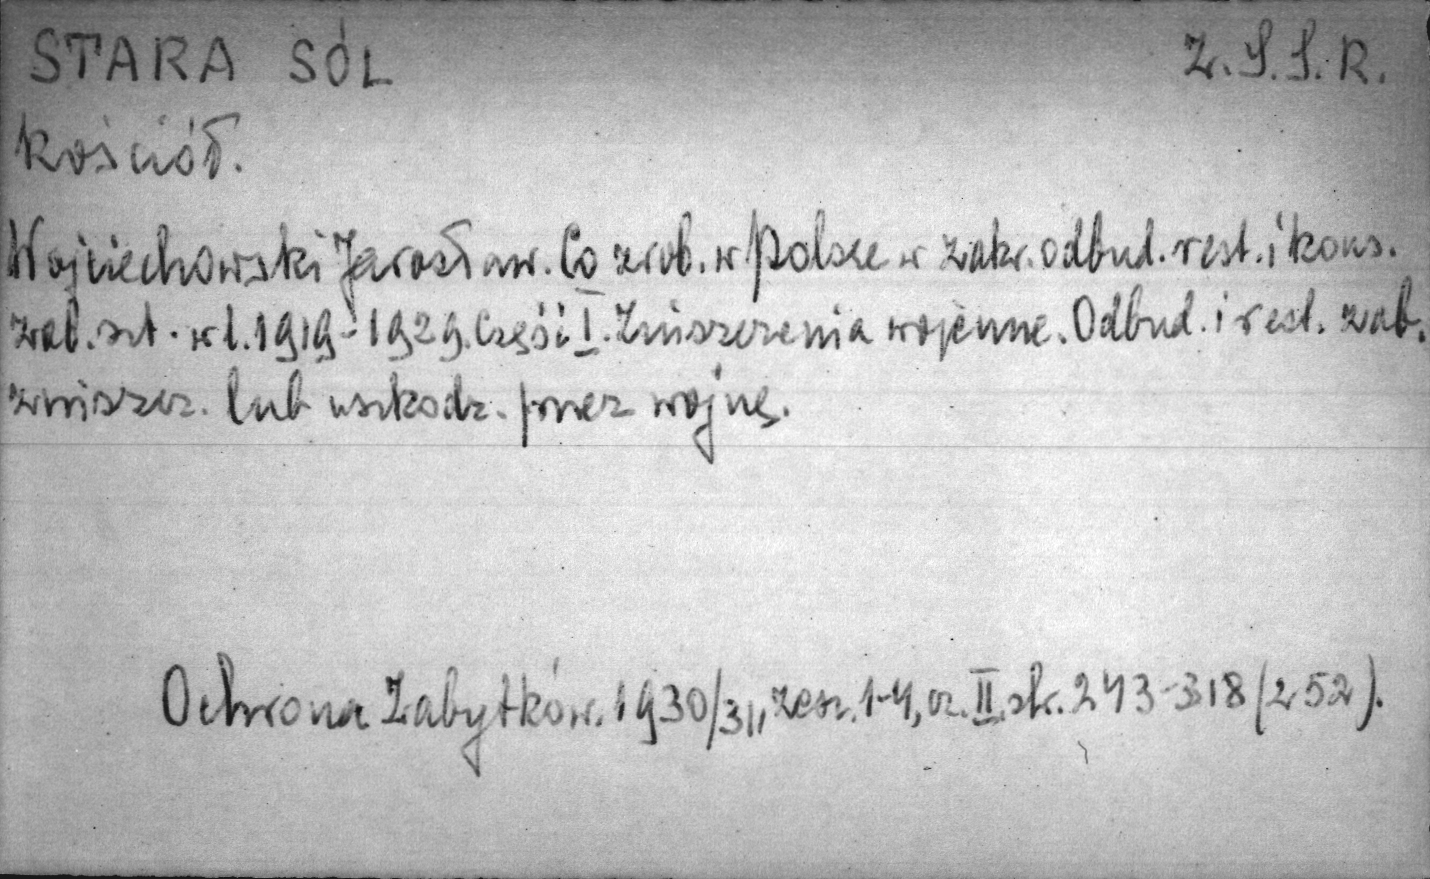 STARA SÓL Z.S.S.R.
Kościół.
Wojciechowski Jarosław. Co zrob. w Polsce w zakr. odbud. rest. i kons.
zab. szt. w l. 1919-1929. Część I. Zniszczenia wojenne. Odbud. i rest. zab.
zniszcz. lub uszkodz. przez wojnę.
Ochrona Zabytków. 1930/31, zesz. 1-4, cz. II. str. 243-318 (252).